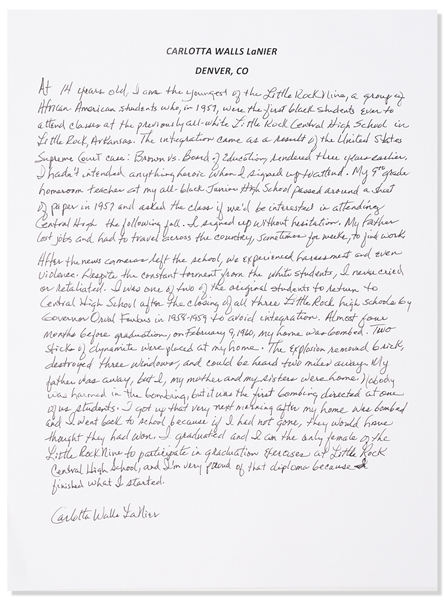 CARLOTTA WALLS LaNIER
DENVER, CO
At 14 years old, I am the youngest of the Little Rock Nine, a group of
African American students who, in 1957, were the first black students ever to
attend classes at the previously all-white Little Rock Central High School in
Little Rock, Arkansas. The integration came as a result of the United States
Supreme Court case: Brown vs. Board of Education, rendered three years earlier.
I hadn't intended anything heroic when I signed up to attend. My 9th grade
homeroom teacher at my all-black Junior High School passed around a sheet
of paper in 1957 and asked the class if we'd be interested in attending
Central High the following fall. I signed up without hesitation. My Father
lost jobs and had to travel across the country, sometimes for weeks, to find work
After the news cameras left the school, we experienced harassment and even
violence. Despite the constant torment from the white students, I never cried,
or retaliated. I was one of two of the original students to return to
Central High School after the closing of all three Little Rock high schools by
Governor Orval Faubus in 1958-1959 to avoid integration. Almost four
months before graduation, on February 9, 1960, my home was bombed. Two
sticks of dynamite were placed at my home. The explosion removed brick,
destroyed three windows, and could be heard two miles away. My
father was away, but I, my mother and my sisters were home. Nobody
was harmed in the bombing, but it was the first bombing directed at one
of us students. I got up that very next morning after my home was bombed
and I went back to school because if I had not gone, they would have
thought they had won. I graduated and I am the only female of the
Little Rock Nine to participate in graduation exercises at Little Rock
Central High School, and I'm very proud of that diploma because I
finished what I started.
Carlotta Walls LaNier